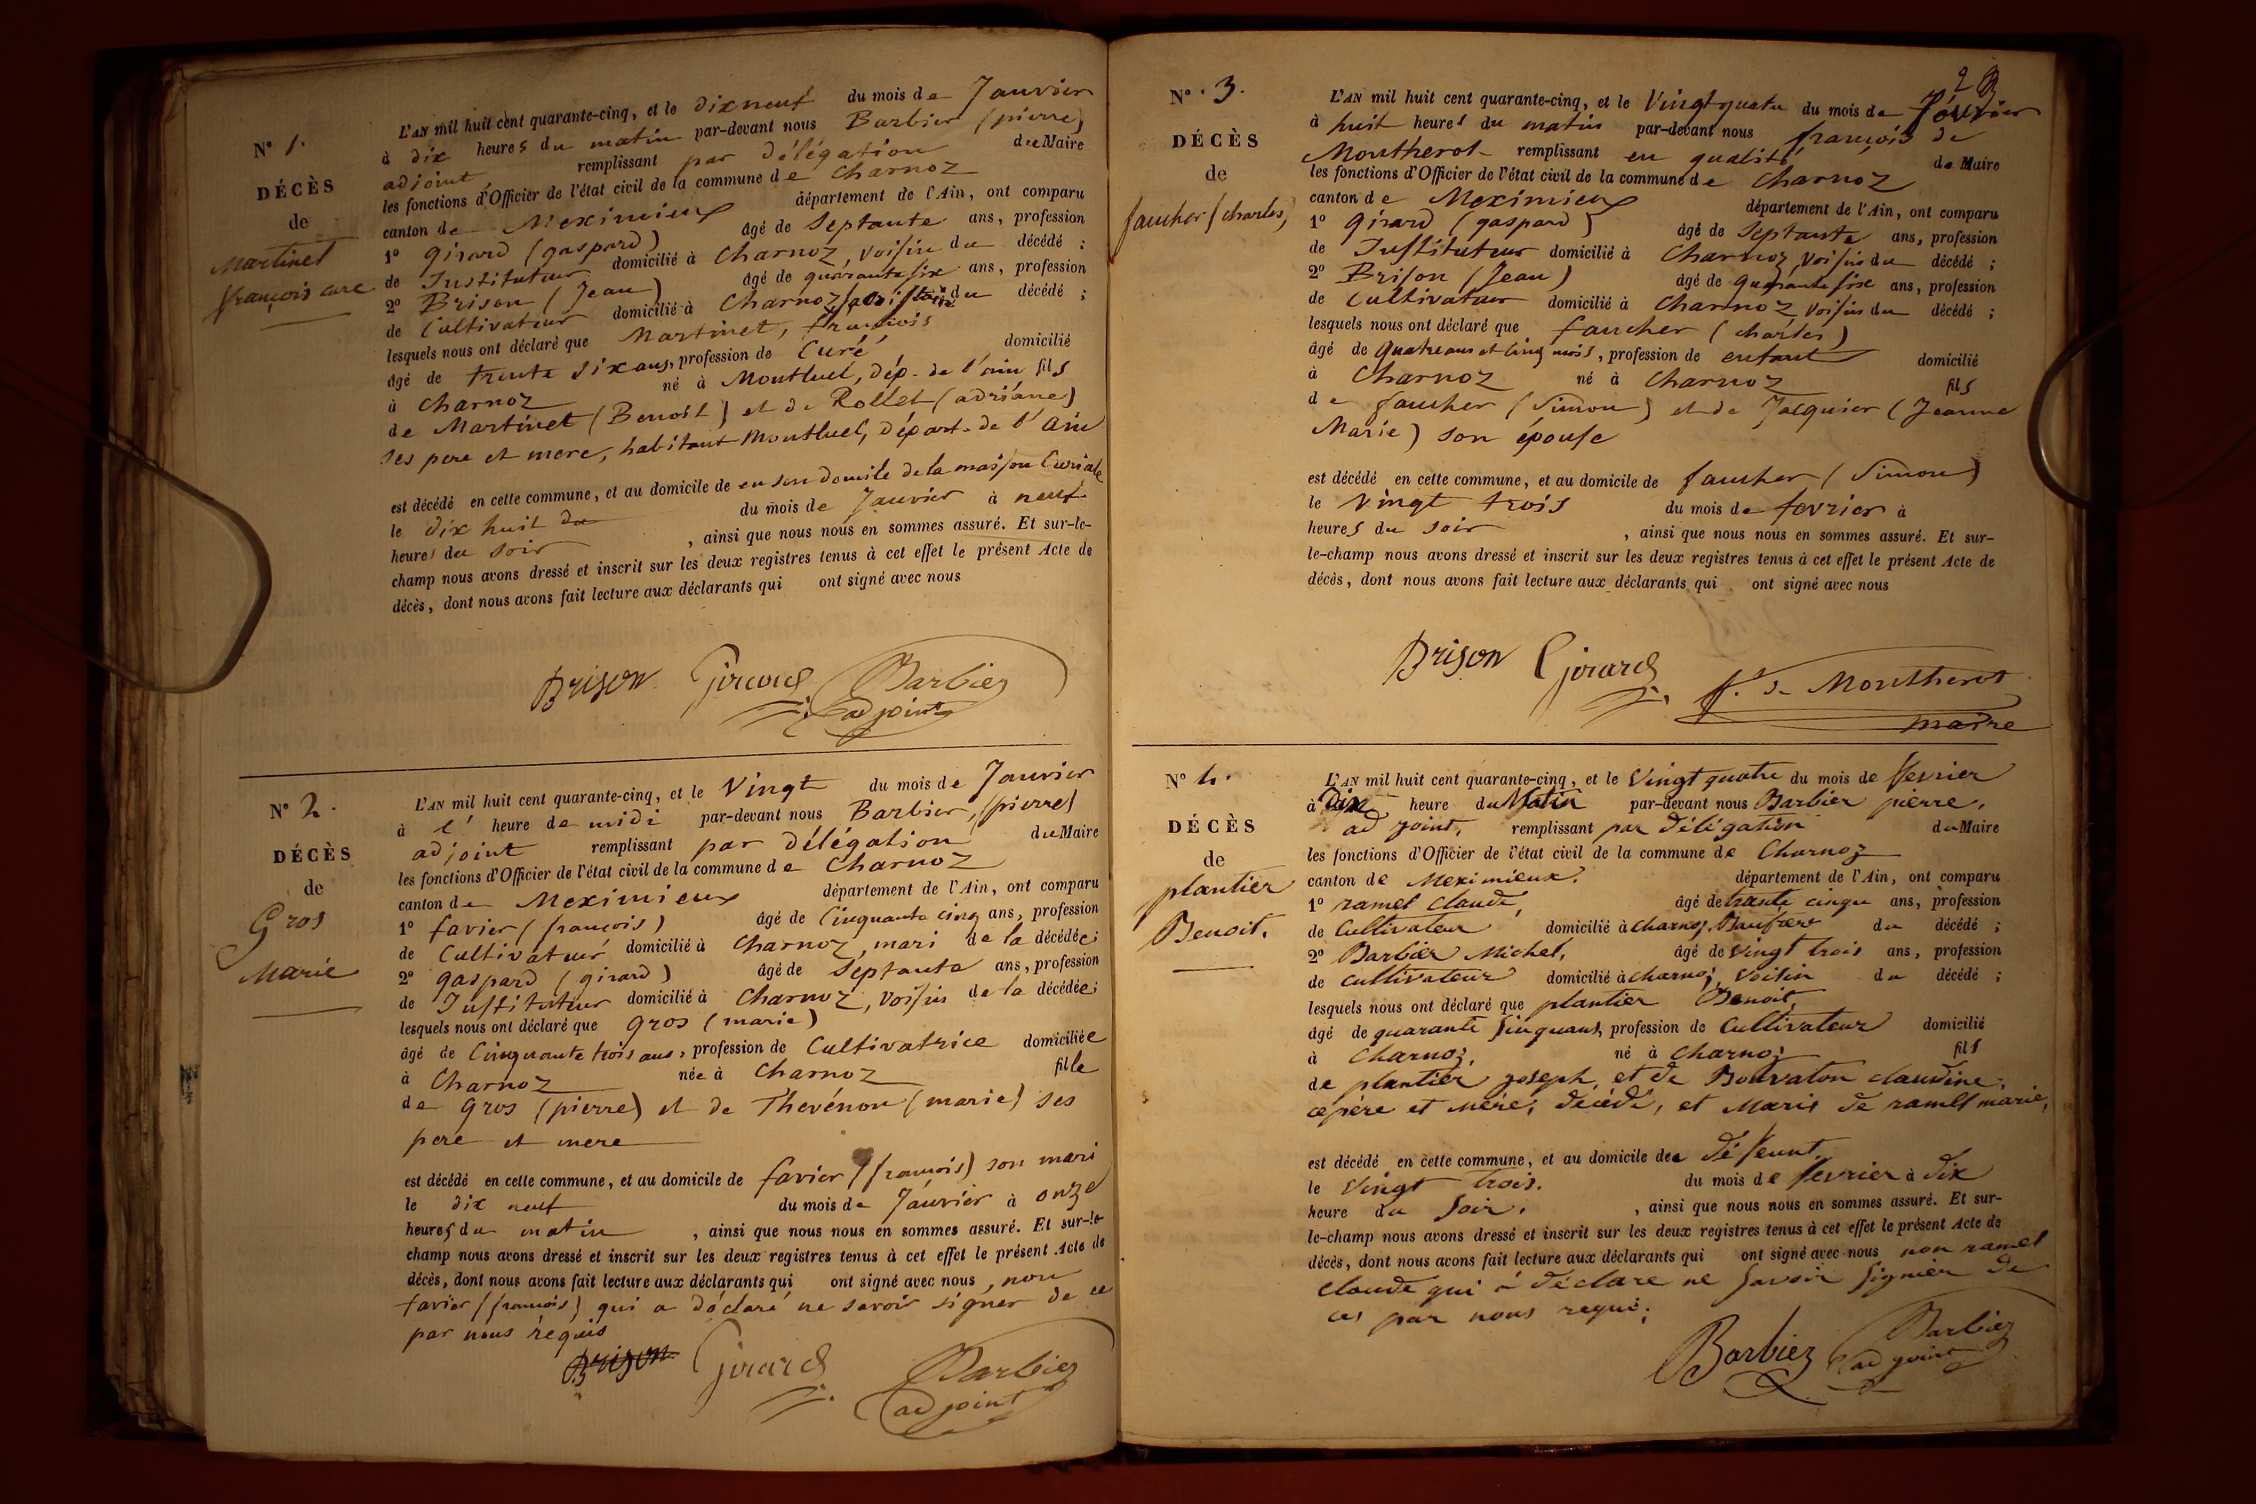 N° 1.
DÉCÈS
de
Martinet
françois curé
L'AN mil huit cent quarante-cinq, et le dix neuf du mois de Janvier
à dix heures du matin par-devant nous Barbier (pierre)
adjoint, remplissant par délégation du Maire
les fonctions d'Officier de l'état civil de la commune de Charnoz
canton de Meximieux département de l'Ain, ont comparu
1° girard (gaspard) âgé de Septante ans, profession
de Instituteur domicilié à Charnoz, voisin du décédé ;
2° Brison (Jean) âgé de quarante six ans, profession
de Cultivateur domicilié à Charnoz du décédé ;
lesquels nous ont déclaré que Martinet, françois
âgé de trente six ans, profession de Curé domicilié
à Charnoz né à Montluel, dép. de l'ain fils
de Martinet (Benoît) et de Rollet (adriane)
ses pere et mere, habitant Montluel, départ. de l'Ain
est décédé en cette commune, et au domicile de en son domicile de la maison Curiale
le dix huit du du mois de Janvier à neuf
heures du soir , ainsi que nous nous en sommes assuré. Et sur-le-
champ nous avons dressé et inscrit sur les deux registres tenus à cet effet le présent Acte de
décès, dont nous avons fait lecture aux déclarants qui ont signé avec nous
Brison Girard Barbier
adjoint
N° 2.
DÉCÈS
de
Gros
Marie
L'AN mil huit cent quarante-cinq, et le Vingt du mois de Janvier
à l' heure de midi par-devant nous Barbier, (pierre)
adjoint remplissant par délégation du Maire
les fonctions d'Officier de l'état civil de la commune de Charnoz
canton de Meximieux département de l'Ain, ont comparu
1° favier (françois) âgé de Cinquante cinq ans, profession
de Cultivateur domicilié à Charnoz, mari de la décédée ;
2° gaspard (girard) âgé de Septante ans, profession
de Instituteur domicilié à Charnoz, voisin de la décédée ;
lesquels nous ont déclaré que gros (marie)
âgé de Cinquante trois ans, profession de Cultivatrice domiciliée
à Charnoz née à Charnoz fille
de gros (pierre) et de Thevénon (marie) ses
pere et mere
est décédé en cette commune, et au domicile de favier (françois) son mari
le dix neuf du mois de Janvier à onze
heures du matin , ainsi que nous nous en sommes assuré. Et sur-le-
champ nous avons dressé et inscrit sur les deux registres tenus à cet effet le présent Acte de
décès, dont nous avons fait lecture aux déclarants qui ont signé avec nous, non
favier (françois) qui a déclaré ne savoir signer de ce
par nous requis
Brison Girard Barbier
adjoint
N° 3.
DÉCÈS
de
faucher (charles)
L'AN mil huit cent quarante-cinq, et le Vingt quatre du mois de février
à huit heures du matin par-devant nous françois de
Montherot remplissant en qualité de Maire
les fonctions d'Officier de l'état civil de la commune de Charnoz
canton de Meximieux département de l'Ain, ont comparu
1° girard (gaspard) âgé de Septante ans, profession
de Instituteur domicilié à Charnoz, voisin du décédé ;
2° Brison (Jean) âgé de quarante six ans, profession
de Cultivateur domicilié à Charnoz voisin du décédé ;
lesquels nous ont déclaré que faucher (charles)
âgé de quatre ans et cinq mois, profession de enfant domicilié
à Charnoz né à Charnoz fils
de faucher (Simon) et de Jacquier (Jeanne
Marie) son épouse
est décédé en cette commune, et au domicile de faucher (Simon)
le vingt trois du mois de fevrier à
heures du soir , ainsi que nous nous en sommes assuré. Et sur-
le-champ nous avons dressé et inscrit sur les deux registres tenus à cet effet le présent Acte de
décès, dont nous avons fait lecture aux déclarants qui ont signé avec nous
Brison Girard f. de Montherot
maire
N° 4.
DÉCÈS
de
plantier
Benoit.
L'AN mil huit cent quarante-cinq, et le Vingt quatre du mois de fevrier
à Dix heure du Matin par-devant nous Barbier pierre,
adjoint, remplissant par délégation du Maire
les fonctions d'Officier de l'état civil de la commune de Charnoz
canton de Meximieux. département de l'Ain, ont comparu
1° ramel claude, âgé de trante cinque ans, profession
de Cultivateur domicilié à charnoz. Baufrere du décédé ;
2° Barbier Michel, âgé de vingt trois ans, profession
de cultivateur domicilié à charnoz, voisin du décédé ;
lesquels nous ont déclaré que plantier Benoit,
âgé de quarante sinquans, profession de Cultivateur domicilié
à Charnoz, né à Charnoz fils
de plantier joseph, et de Bonvaton claudine,
cepére et mére, décédé, et Maris de ramel marie,
est décédé en cette commune, et au domicile de défeunt,
le Vingt trois. du mois de fevrier à dix
heure du soir, , ainsi que nous nous en sommes assuré. Et sur-
le-champ nous avons dressé et inscrit sur les deux registres tenus à cet effet le présent Acte de
décès, dont nous avons fait lecture aux déclarants qui ont signé avec nous non ramel
claude qui à déclare ne savoir signier de
ces par nous requi.
Barbier Barbier
adjoint